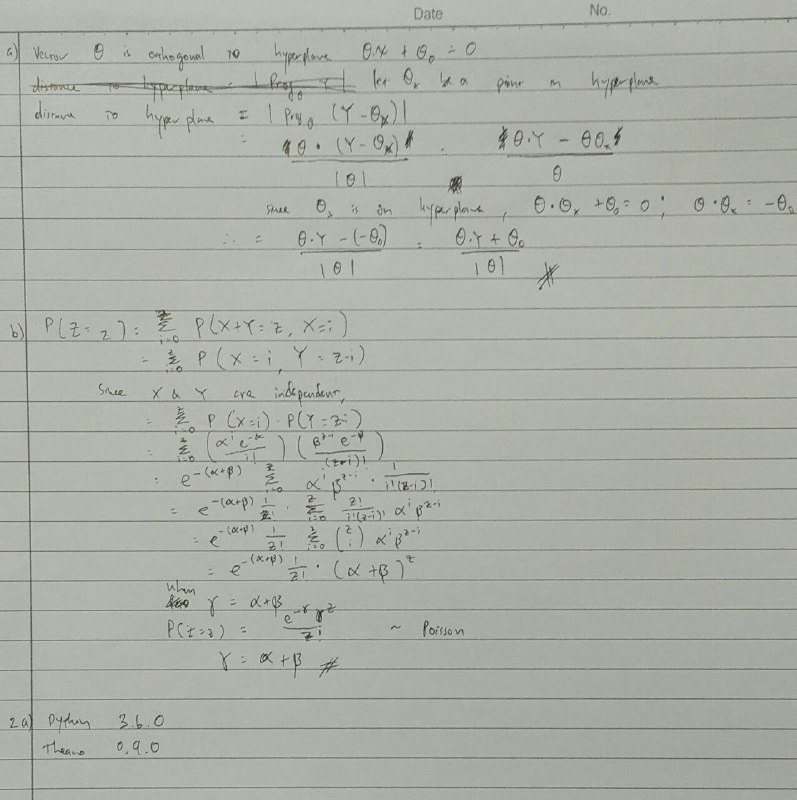 Date No.
a) Vector θ is orthogonal to hyperplane θ·x + θ₀ = 0
distance to hyperplane = | Proj_θ Y | let θₓ be a point on hyperplane
distance to hyperplane = | Proj_θ (Y - θₓ) |
= θ · (Y - θₓ) / |θ| = θ·Y - θθₓ / θ
since θₓ is on hyperplane, θ·θₓ + θ₀ = 0; θ·θₓ = -θ₀
∴ = θ·Y - (-θ₀) / |θ| = θ·Y + θ₀ / |θ| #
b) P(Z = z) = Σ_{i=0}^{z} P(X+Y = z, X=i)
= Σ_{i=0}^{z} P(X = i, Y = z-i)
Since X & Y are independent,
= Σ_{i=0}^{z} P(X=i) · P(Y=z-i)
= Σ_{i=0}^{z} (α^i e^{-α} / i!) (β^{z-i} e^{-β} / (z-i)!)
= e^{-(α+β)} Σ_{i=0}^{z} α^i β^{z-i} · 1 / i!(z-i)!
= e^{-(α+β)} 1/z! · Σ_{i=0}^{z} z! / i!(z-i)! α^i β^{z-i}
= e^{-(α+β)} 1/z! Σ_{i=0}^{z} (z i) α^i β^{z-i}
= e^{-(α+β)} 1/z! · (α + β)^z
when γ = α+β
P(Z=z) = e^{-γ} γ^z / z! ~ Poisson
γ = α + β #
2a) Python 3.6.0
Theano 0.9.0